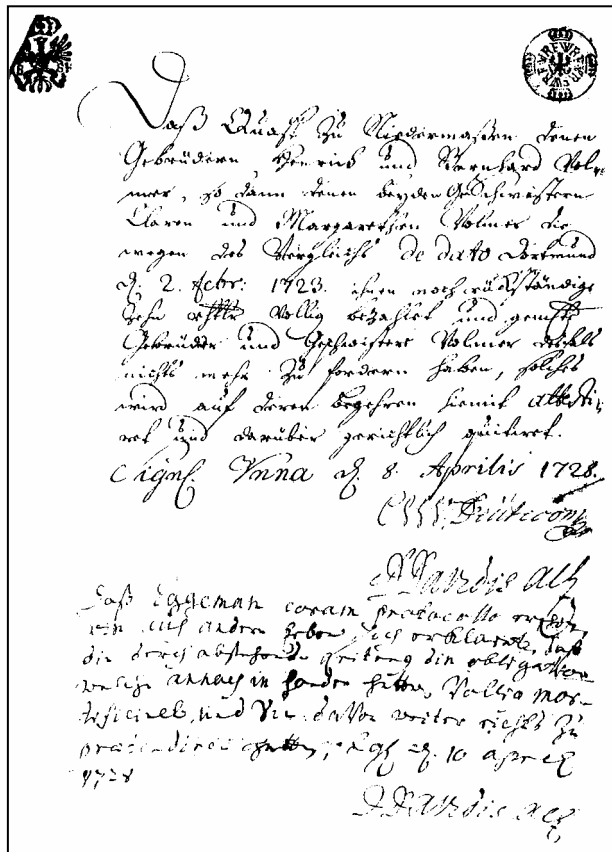 Daß Quast zu Niedermaßen denen
Gebrüdern Henrich und Bernhard Vol-
mer, so dann denen beyden Geschwistern
Claren und Margarethen Volmer die
wegen des Vergleichs de dato Dortmund
d. 2. febr: 1723. ihnen noch rückständige
Zehn rthlr völlig bezahlet und
Gebrüder und Geschwistere Volmer deßfals
nichts mehr zu fordern haben, solches
wird auf deren begehren hiemit attesti-
ret und darüber gerichtlich quitiret.
Sign. Vnna d. 8. Aprilis 1728.
Daß Eggeman coram protocollo
andern sich erklaert, daß
die durch die obligation
welche annoch in handen hette, Vollig mor-
tificiret, und Sie davon weiter nichts zu
praetendiren hette, d. 10 april
1728